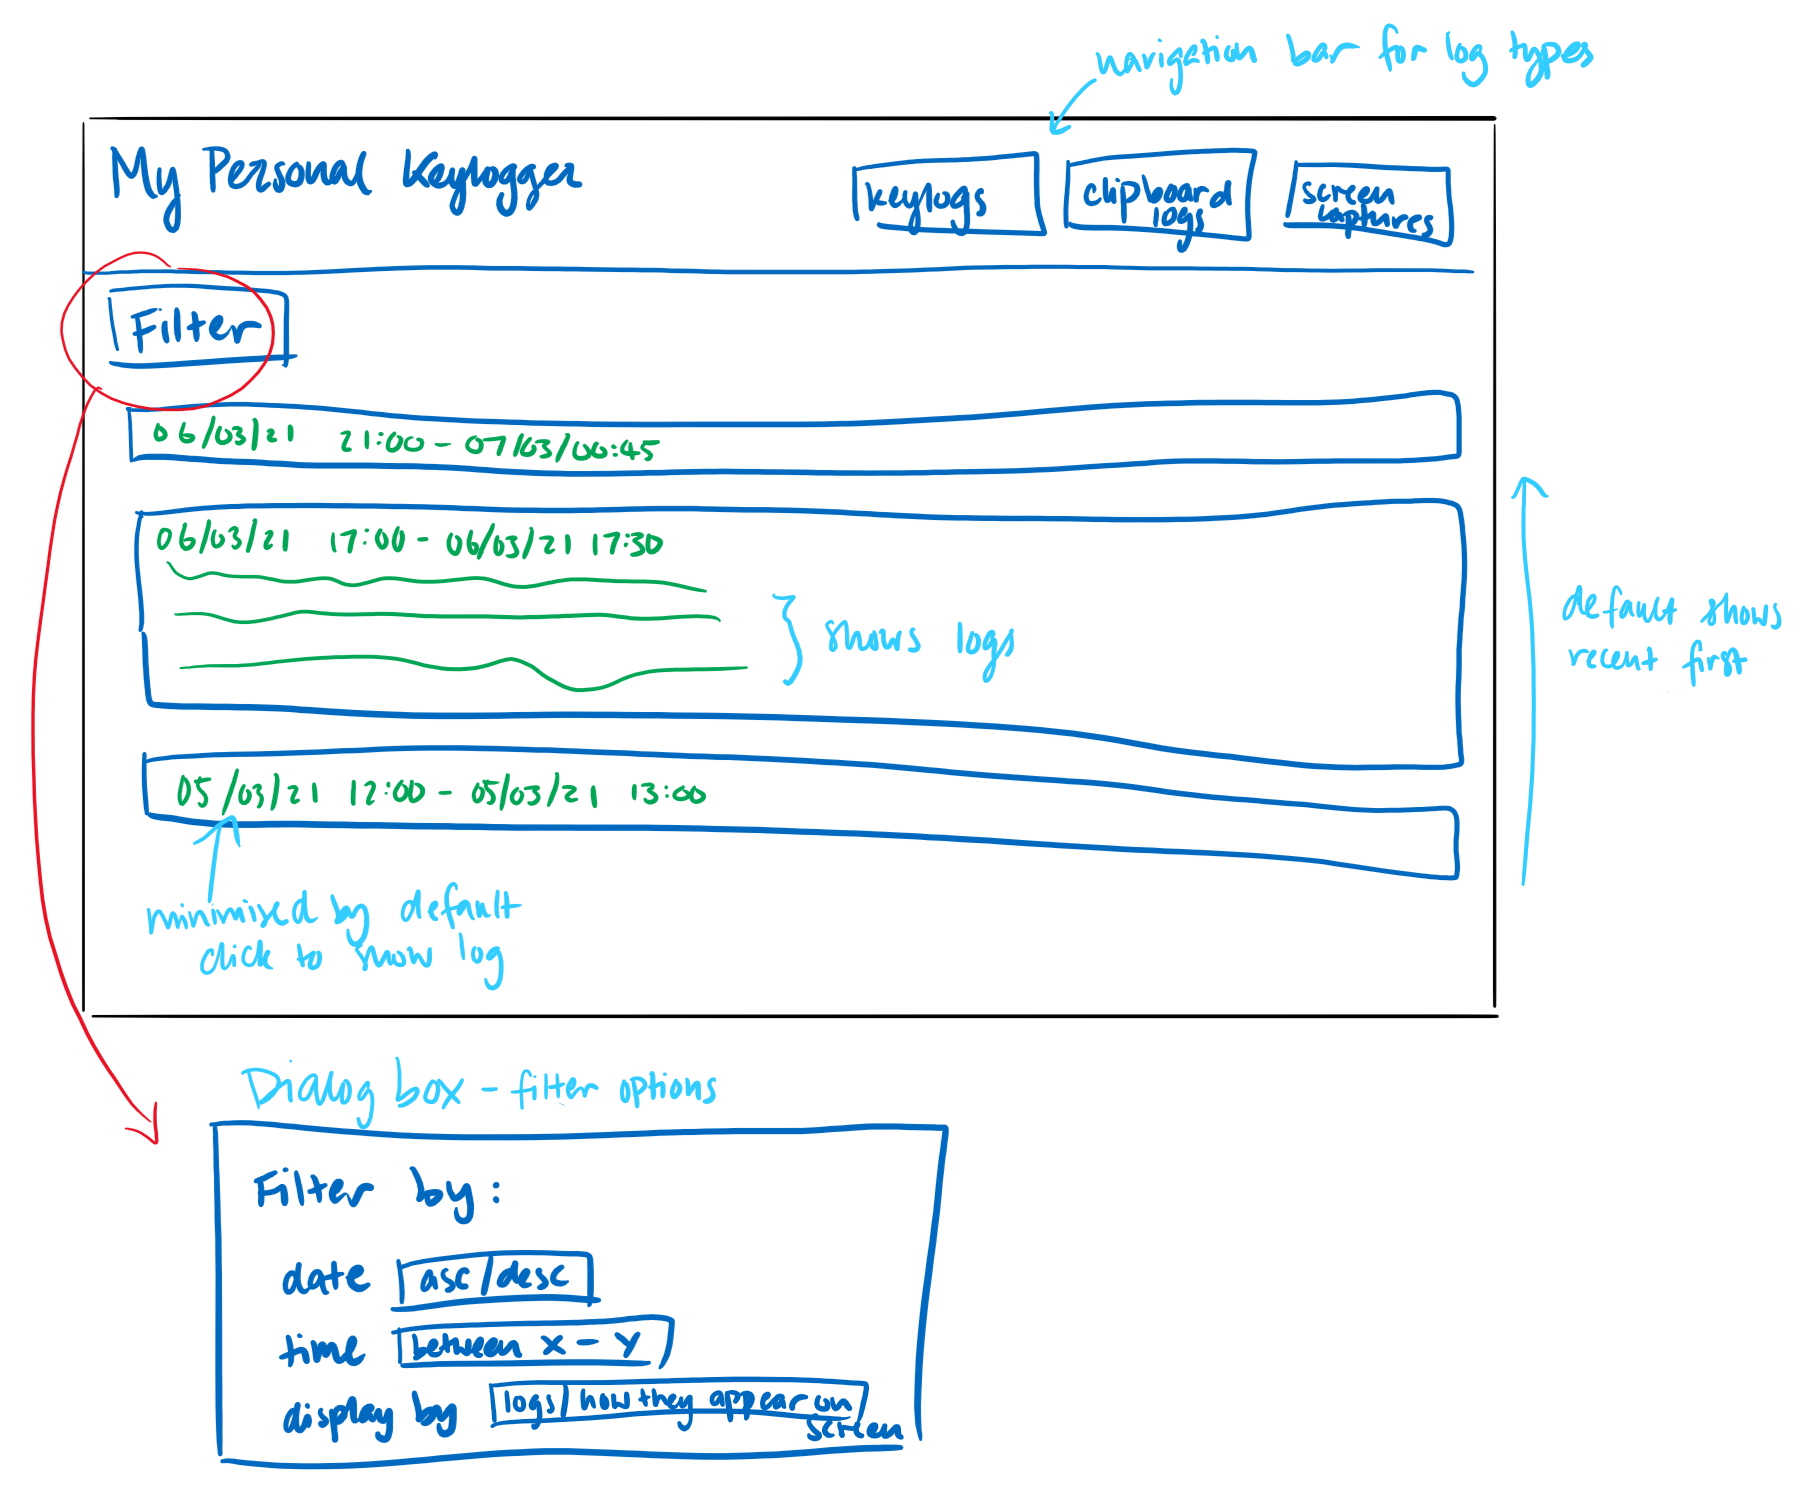 navigation bar for log types
My Personal Keylogger
keylogs
clipboard
logs
screen
captures
Filter
06/03/21 21:00 - 07/03/00:45
06/03/21 17:00 - 06/03/21 17:30
shows logs
default shows
recent first
05/03/21 12:00 - 05/03/21 13:00
minimised by default
click to show log
Dialog box - filter options
Filter by:
date asc/desc
time between x - y
display by logs/how they appear on
screen